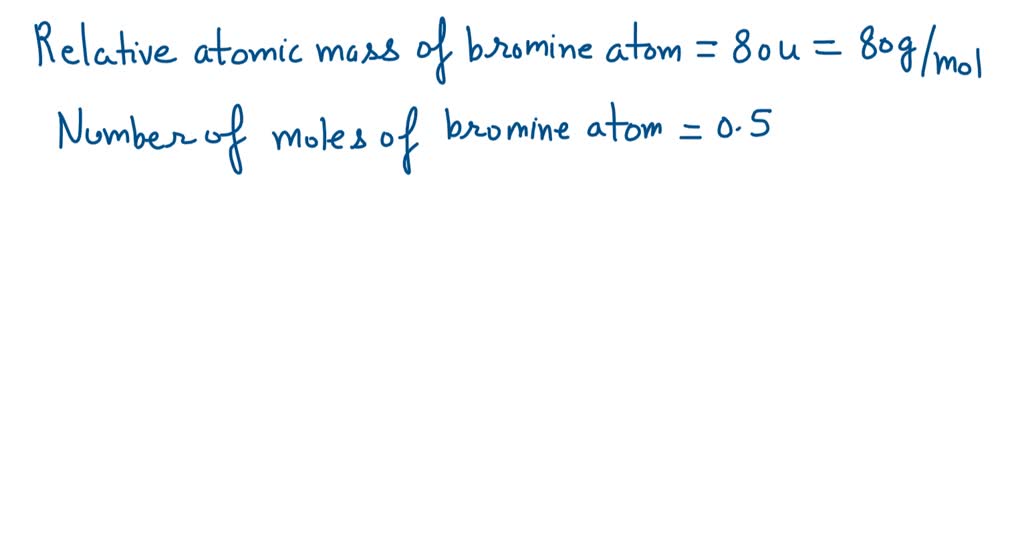 Relative atomic mass of bromine atom = 80u = 80g/mol
Number of moles of bromine atom = 0.5